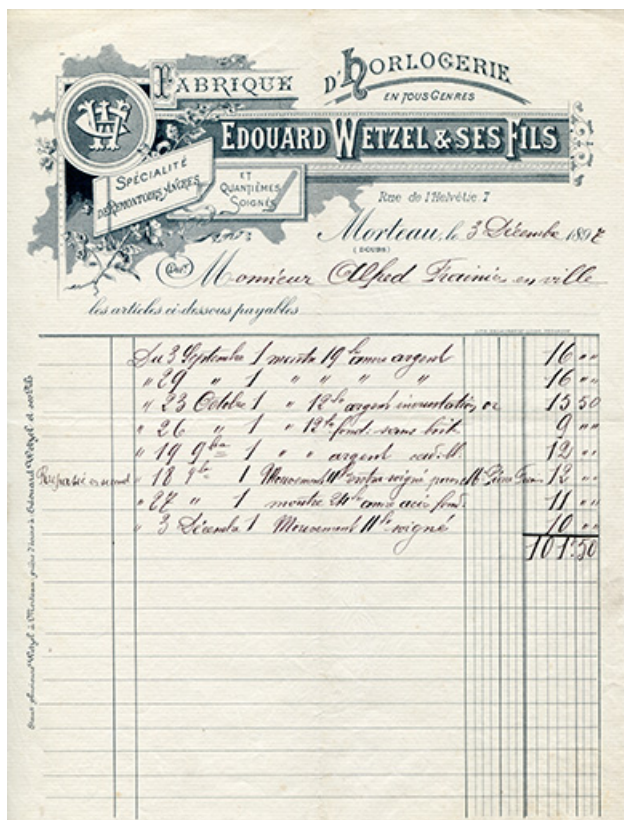 FABRIQUE D'HORLOGERIE
EN TOUS GENRES
EDOUARD WETZEL & SES FILS
SPÉCIALITÉ
DE REMONTOIRS ANCRES
ET
QUANTIÈMES
SOIGNÉS
Rue de l'Helvétie 7
Morteau, le 3 Décembre 1897
(DOUBS)
Doit Monsieur Alfred en ville
les articles ci-dessous payables
Du 3 Septembre 1 montre 19 argent 16 "
" 29 " 1 " " " " 16 "
" 23 Octobre 1 " 12 argent incrustation or 15 50
" 26 " 1 " 12 fond. sans boît 9 "
" 19 9bre 1 " " argent 12 "
" 18 9bre 1 Mouvement 11 soigné pour 12 "
" 27 " 1 montre 24 acier 11 "
" 3 Décembre 1 Mouvement 11 soigné 10 "
101 50
à Morteau, prière d'écrire à Edouard Wetzel et ses fils